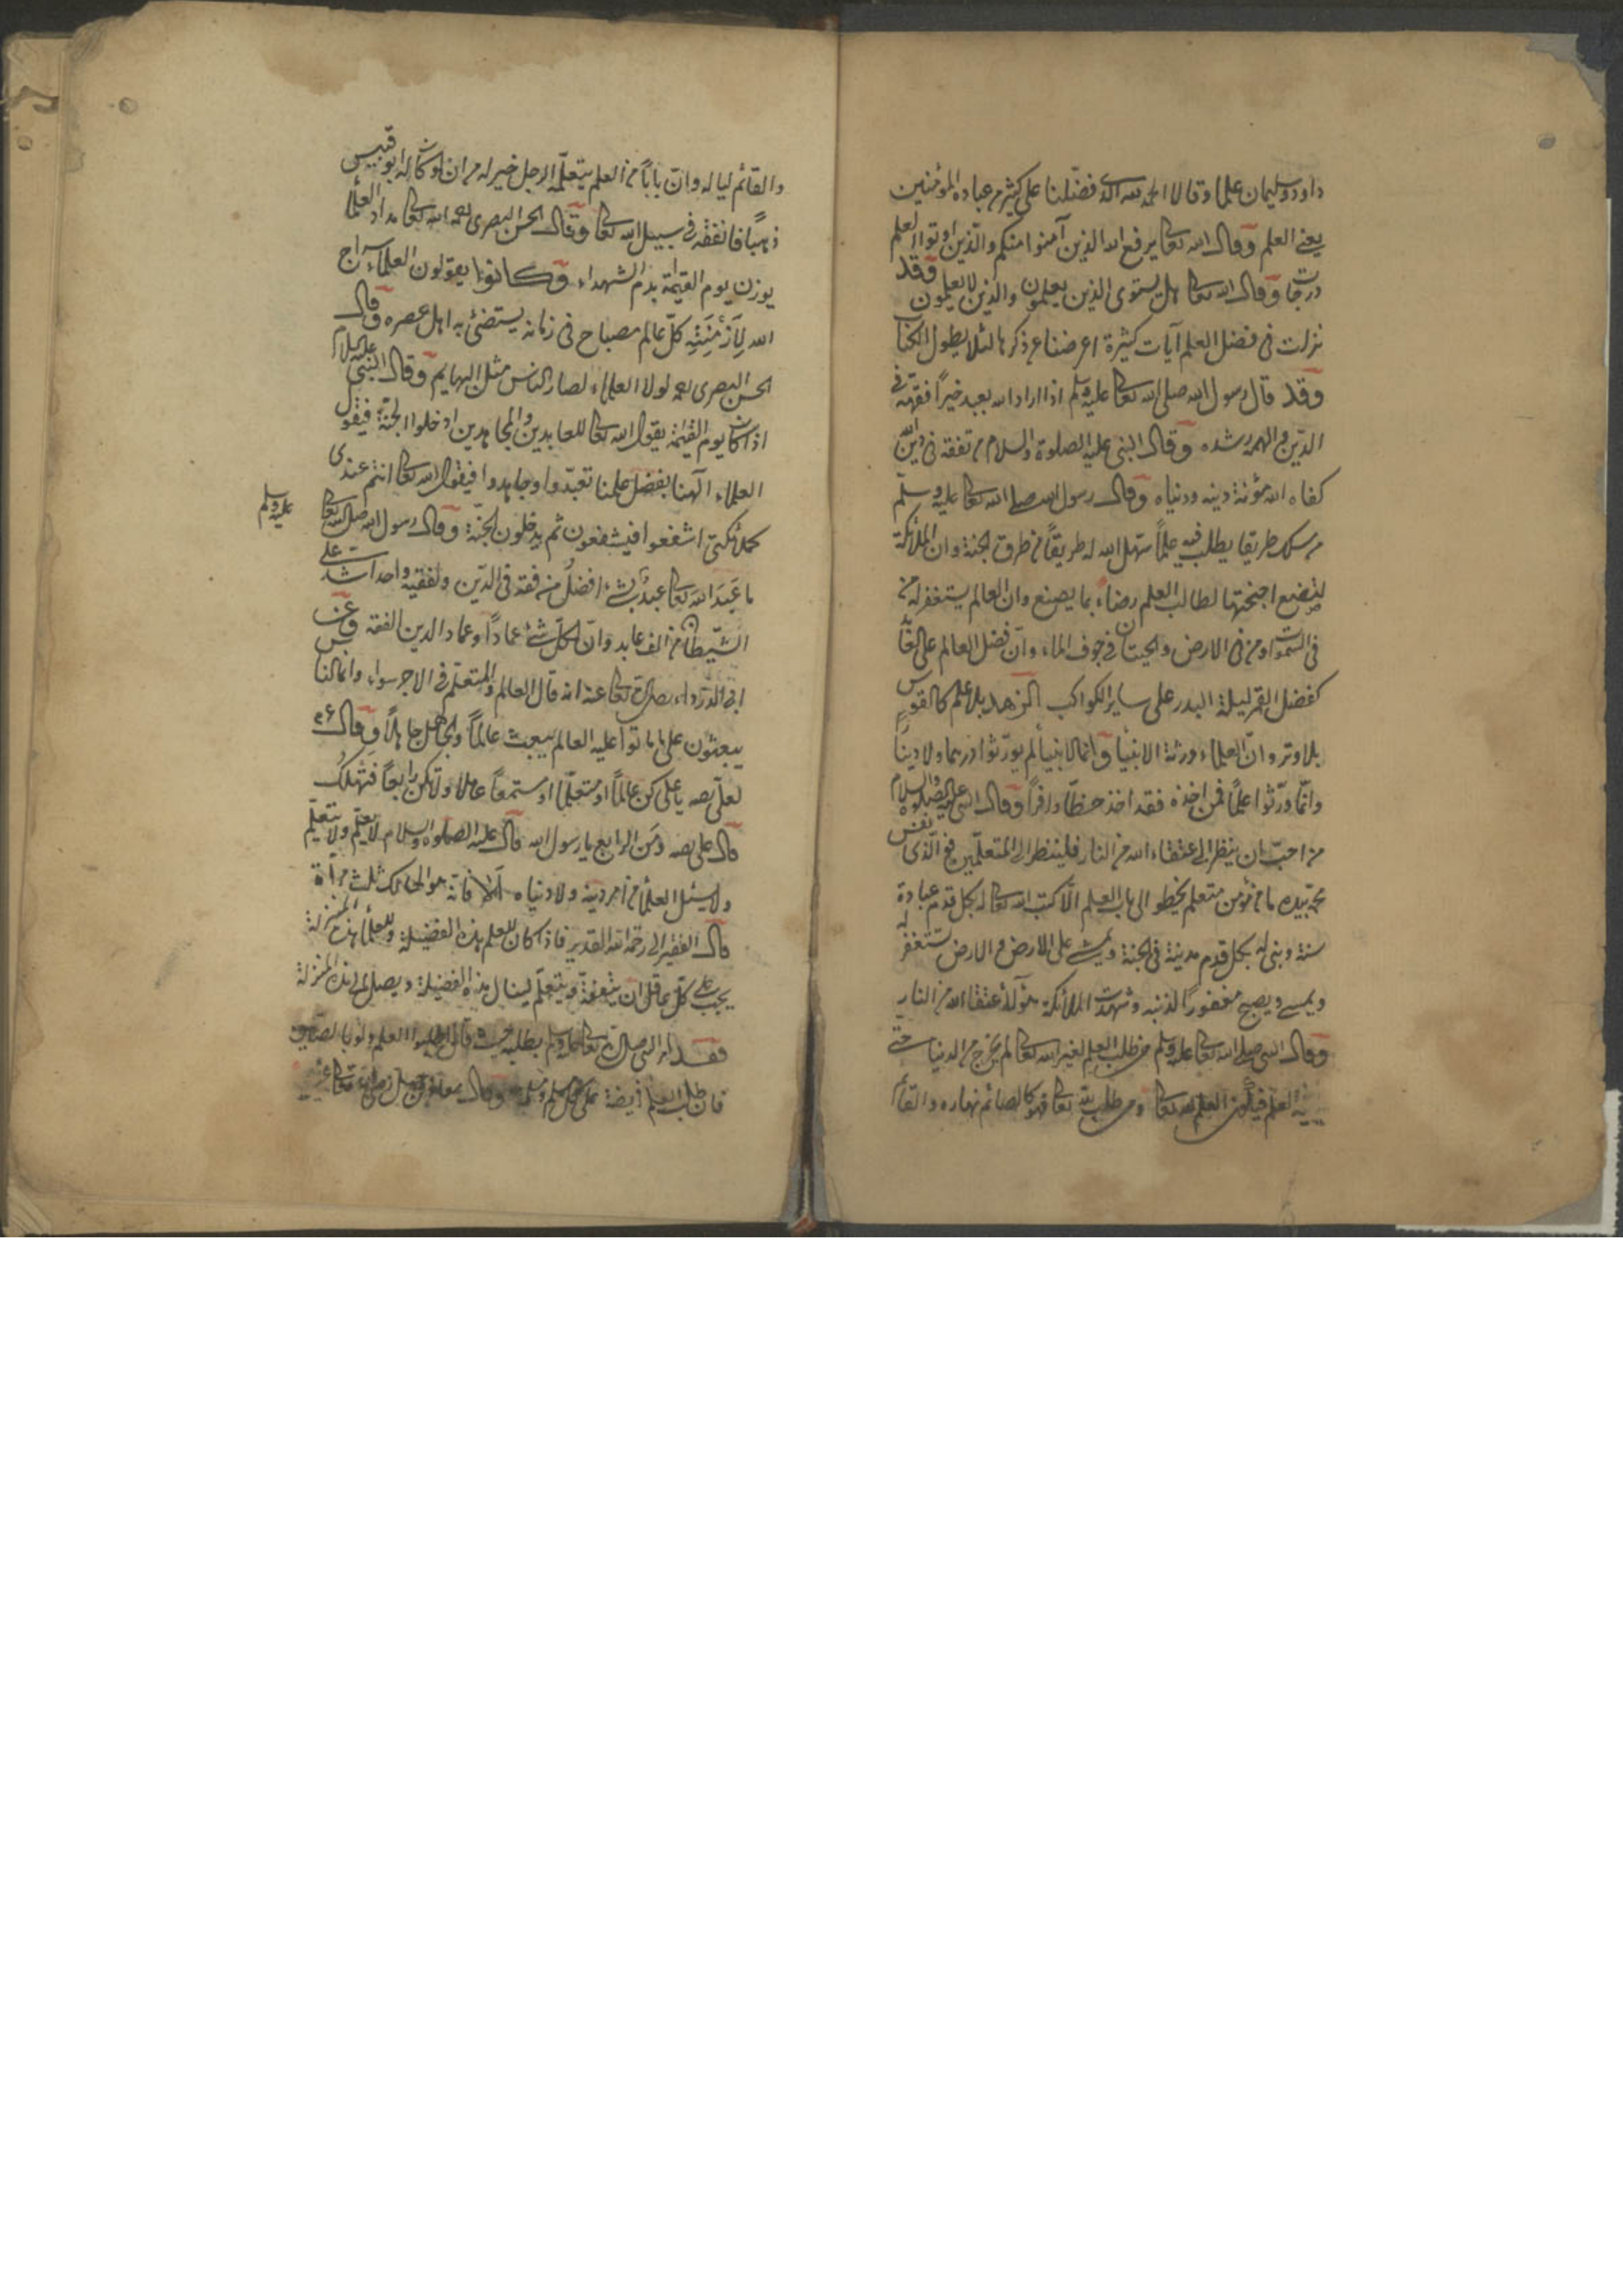 داود وسليمان علما وقالا الحمد لله الذى فضّلنا على كثير من عباده المؤمنين
يعنى العلم وقال الله تعا يرفع الله الذين آمنوا منكم والذين اوتوا العلم
درجات وقال الله تعا هل يستوى الذين يعلمون والذين لا يعلمون وقد
نزلت فى فضل العلم آيات كثيرة اعرضنا عن ذكرها لئلا يطول الكتاب
وقد قال رسول الله صلى الله تعا عليه وسلم اذا اراد الله بعبد خيراً فقهه فى
الدّين والهمه رشده وقال النبى عليه الصلوة والسلام من تفقه فى دين الله
كفاه الله مؤنة دينه ودنياه وقال رسول الله صلى الله تعا عليه وسلّم
من سلك طريقا يطلب فيه علماً سهّل الله له طريقاً من طرق الجنة وان الملائكة
لتضع اجنحتها لطالب العلم رضاء بما يصنع وان العالم يستغفر له من
فى السّموات ومن فى الارض والحيتان فى جوف الماء وانّ فضل العالم على
كفضل القمر ليلة البدر على ساير الكواكب الزهد بلا علم كالقوس
بلا وتر وانّ العلماء ورثة الانبياء وان الانبياء لم يورّثوا درهما ولا دينارا
وانّما ورّثوا علماً فمن اخذه فقد اخذ حظّا وافراً وقال النبى عليه الصلوة والسلام
من احبّ ان ينظر الى عتقاء الله من النار فلينظر الى المتعلّمين فو الّذى نفس
محمّد بيده ما من مؤمن متعلم يخطو الى باب العلم الّا كتب الله تعا له بكل قدم عبادة
سنة وبنى له بكل قدم مدينة فى الجنة ويمشى على الارض والارض تستغفر له
ويمسى ويصبح مغفوراً لذنبه وشهدت الملائكة هؤلاء عتقاء الله من النار
وقال النبى صلى الله تعا عليه وسلم من طلب العلم لغير الله تعا لم يخرج من الدنيا حتى
العلم فيكون العلم لله تعا ومن طلب لله تعا فهو كالصائم نهاره والقائم
والقائم لياله وانّ باباً من العلم يتعلّمه الرجل خير له من ان لو كان له ابو قبيس
ذهباً فانفقه فى سبيل الله تعا وقال الحسن البصرى رحمه الله تعا مداد العلماء
يوزن يوم القيامة بدم الشهداء وكانوا يقولون العلماء سراج
الله لِأَزْمِنَتِهِ كلّ عالم مصباح فى زمانه يستضئ به اهل عصره وقال
الحسن البصرى رحمه لولا العلماء لصار الناس مثل البهايم وقال النبى عليه السلام
اذا كان يوم القيمة يقول الله تعا للعابدين والمجاهدين ادخلوا الجنّة فيقول
العلماء الهنا بفضل علمنا تعبّدوا وجاهدوا فيقول الله تعا انتم عندى
كملائكتى اشفعوا فيشفعون ثم يدخلون الجنّة وقال رسول الله صلى الله تعا
عليه وسلم
ما عَبَدَ الله تعا عبدٌ بشئ افضلُ من فقه فى الدّين ولفقيه واحد اشد على
الشّيطان من الف عابد وانّ لكلّ شئ عماداً وعماد الدين الفقه وعن
ابى الدّرداء رضى الله تعا عنه انه قال العالم والمتعلّم فى الاجر سواء وانما الناس
يبعثون على ما ماتوا عليه العالم يبعث عالماً والجاهل جاهلاً وقال
لعلىّ يا على كن عالماً او متعلّما او مستمعاً ولا تكن رابعاً فتهلك
قال على ومَن الرابع يا رسول الله قال عليه الصلوة والسلام لا يعلم ولا يتعلّم
ولا يسئل العلماء من امر دينه ولا دنياه ألا فانّه هو الهالك ثلث مرّات
قال الفقير الى رحمة الله القدير فاذا كان للعلم هذه الفضيلة وللعلماء هذه المنزلة
يجب على كلّ عاقل ان يتفقّه ويتعلّم لينال هذه الفضيلة ويصل الى هذه المنزلة
فقد امر النبى صلى الله تعا عليه وسلم بطلبه حيث قال اطلبوا العلم ولو بالصّين
فان طلب العلم فريضة على كل مسلم ومسلمة وقال معاذ بن جبل رضى الله تعا عنه